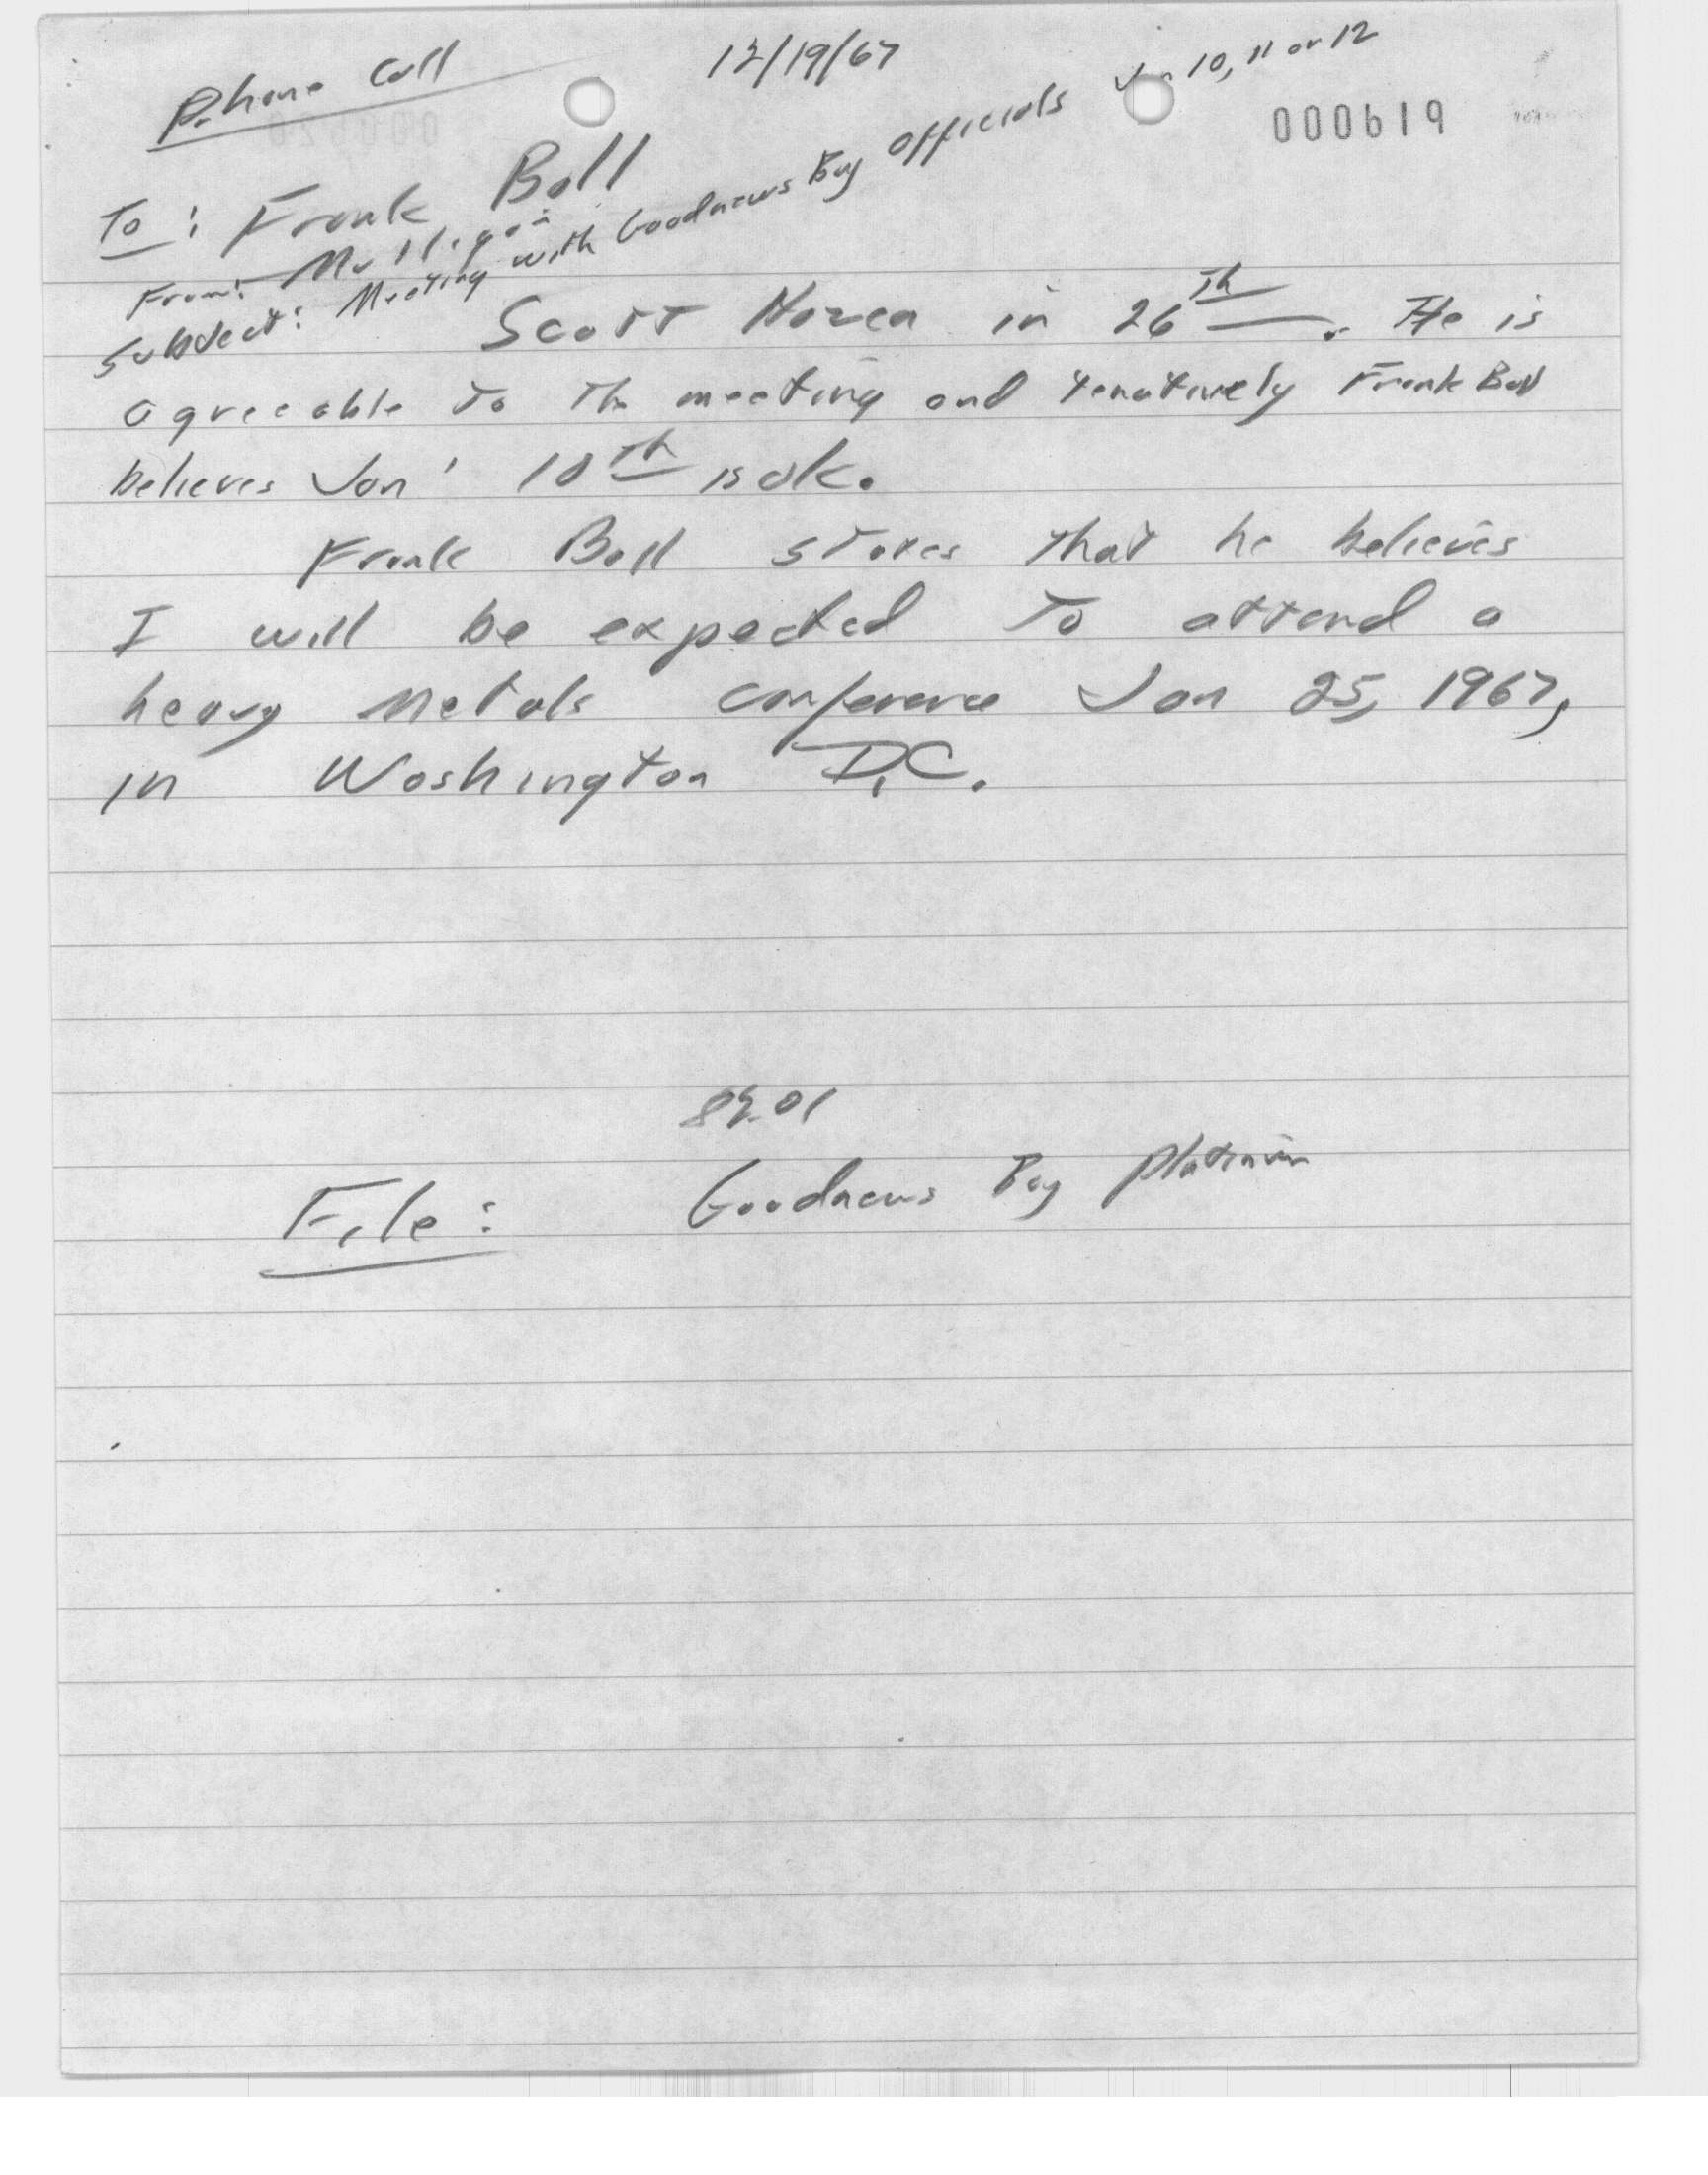 Phone Call 12/19/67
000619
To: Frank Bell
From: Mulligan
Subject: Meeting with Goodnews Bay officials Jan 10, 11 or 12
Scott Hazen in 26th. He is
agreeable to the meeting and tenatively Frank Bell
believes Jan' 10th is ok.
Frank Bell states that he believes
I will be expected to attend a
heavy metals conference Jan 25, 1967,
in Washington D.C.
File: Goodnews Bay Platinum